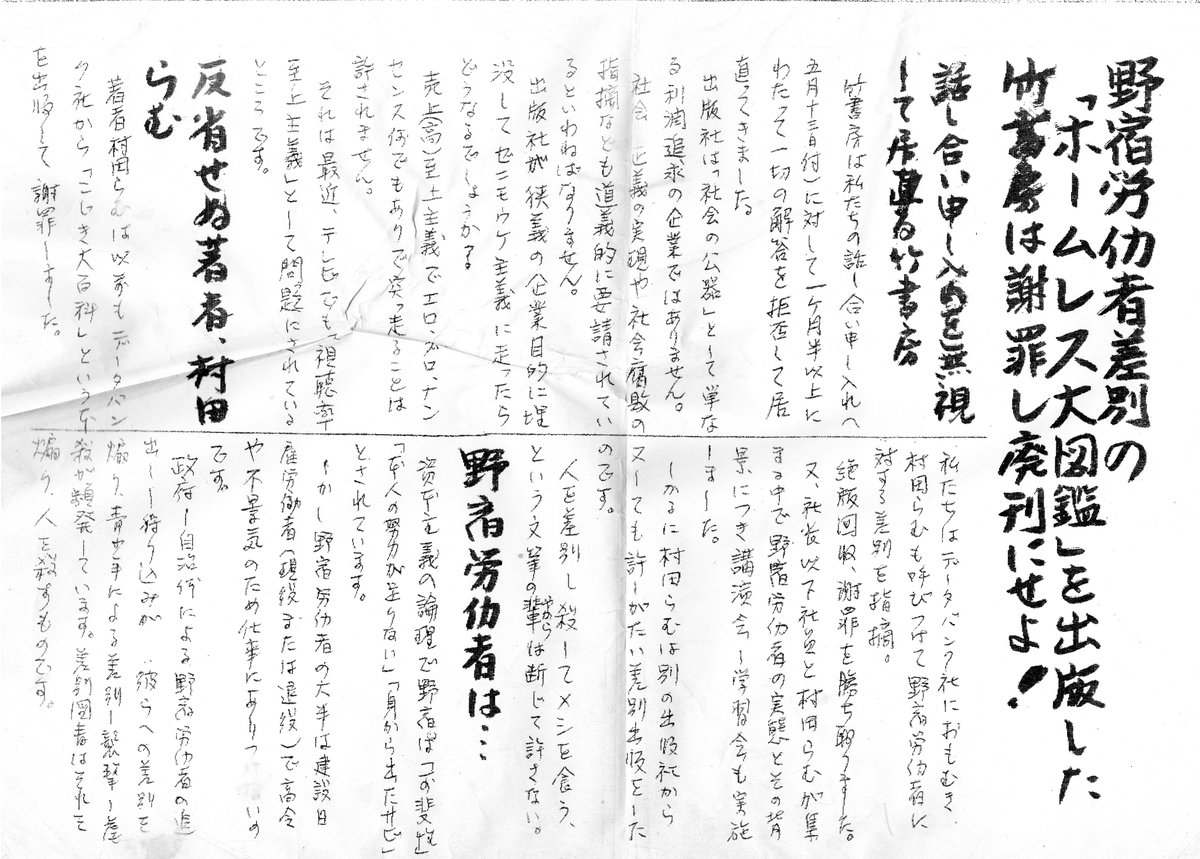 野宿労仂者差別の
「ホームレス大図鑑」を出版した
竹書房は謝罪し廃刊にせよ!
話し合い申し入れを無視
して居直る竹書房
竹書房は私たちの話し合い申し入れへ
五月十三日付)に対して一ケ月半以上に
わたって一切の解答を拒否して居
直ってきました。
出版社は「社会の公器」として単な
る利潤追求の企業ではありません。
社会正義の実現や社会腐敗の
指摘なども道義的に要請されてい
るといわねばなりません。
出版社が狭義の企業目的に埋
没してゼニモウケ主義に走ったら
どうなるでしょうか?
売上(高)至上主義でエロ、グロ、ナン
センス何でもありで突っ走ることは
許されません。
それは最近、テレビでも「視聴率
至上主義」として問題にされている
ところです。
反省せぬ著者、村田
らむ
著者村田らむは以前もデータバン
ク社から「こじき大百科」という本
を出版して 謝罪しました。
私たちはデータバンク社におもむき、
村田らむも呼びつけて野宿労仂者に
対する差別を指摘。
絶版回収、謝罪を勝ち取りました。
又、社長以下社員と村田らむが集
まる中で野宿労仂者の実態とその背
景につき講演会-学習会も実施
しました。
しかるに村田らむは別の出版社から
又しても許しがたい差別出版をした
のです。
人を差別し殺してメシを食う、
という文筆の輩やからは断じて許さない。
野宿労仂者は…
資本主義の論理で野宿は「お悲惨」
「本人の努力が足りない」「身から出たサビ」
とされています。
しかし野宿労仂者の大半は建設日
雇労働者(現役または退役)で高令
や不景気のため仕事にありつけないの
です。
政府-自治体による野宿労仂者の追
出し-狩り込みが 彼らへの差別を
煽り、青少年による差別-襲撃-虐
殺が頻発しています。差別図書はそれを
煽り、人を殺すものです。